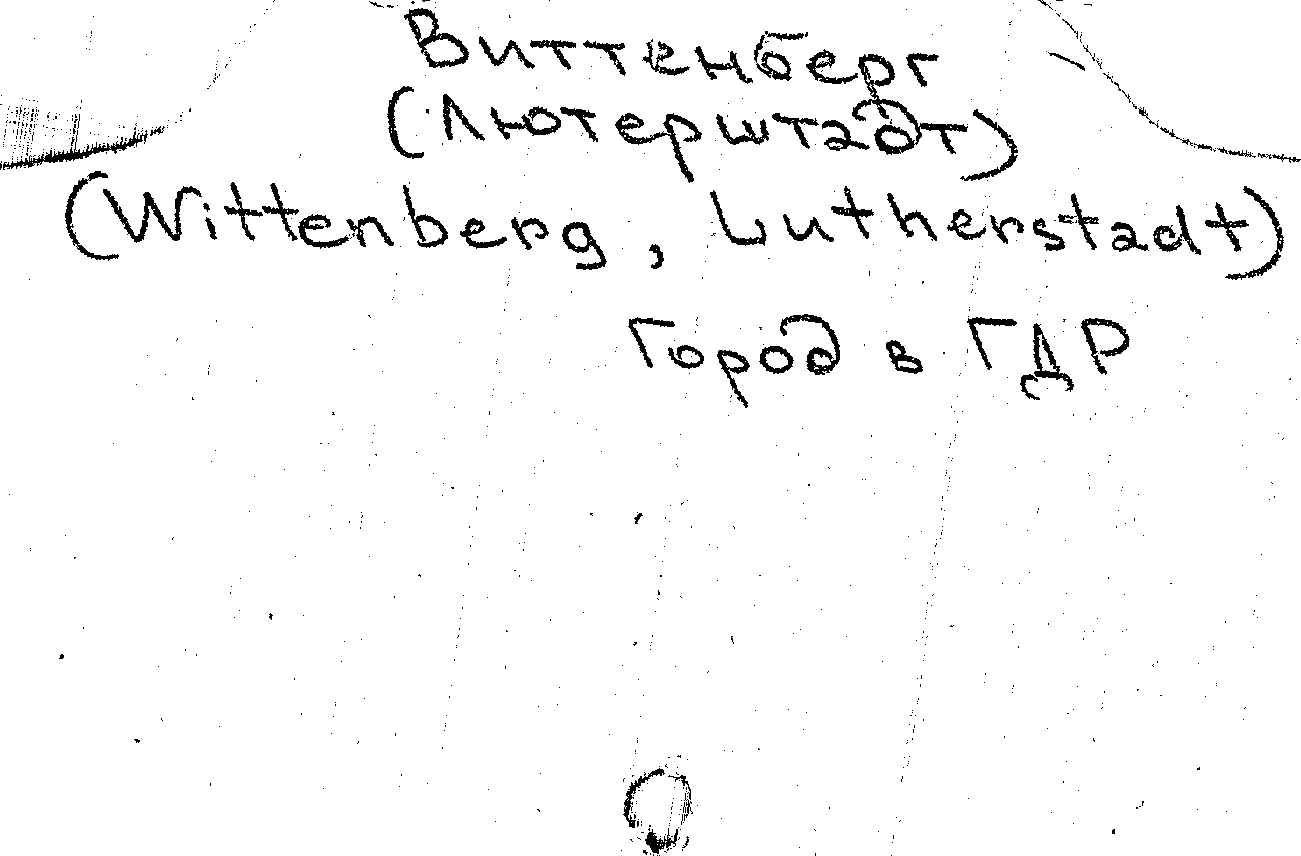 Виттенберг
(Лютерштадт)
(Wittenberg, Lutherstadt)
Город в ГДР